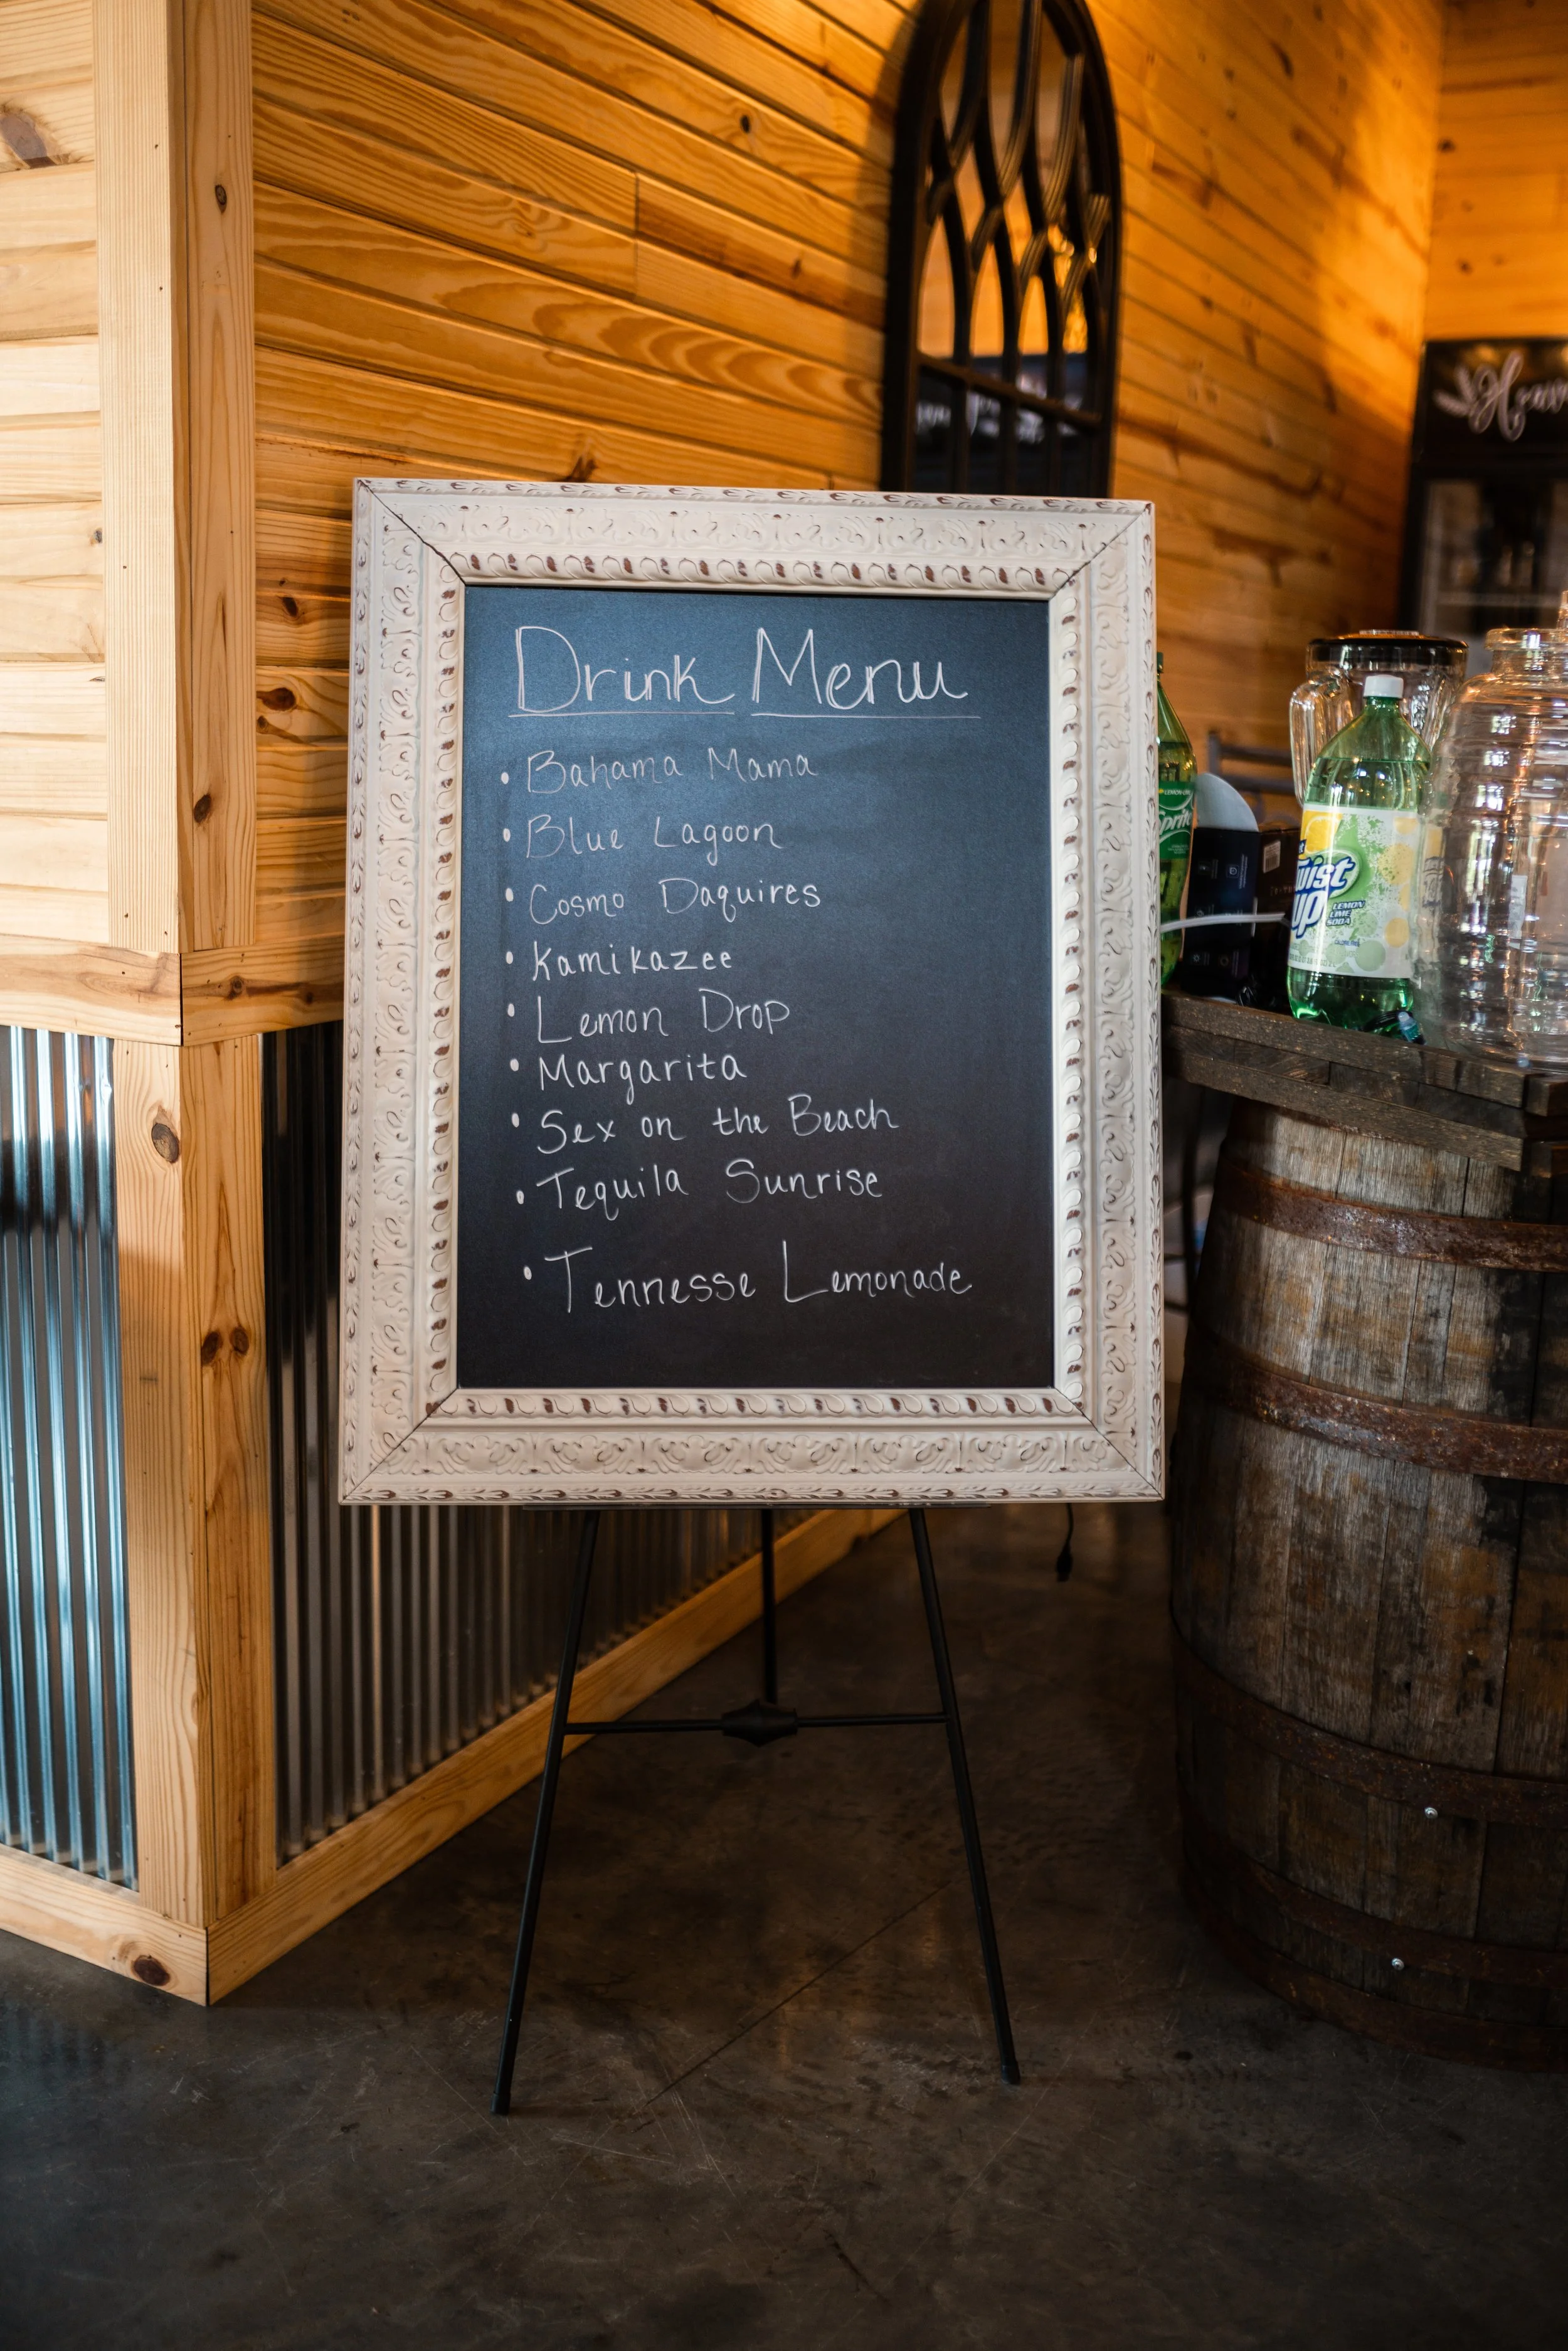 Drink Menu
• Bahama Mama
• Blue Lagoon
• Cosmo Daquires
• Kamikazee
• Lemon Drop
• Margarita
• Sex on the Beach
• Tequila Sunrise
• Tennesse Lemonade
LEMON-LIME
Sprite
Twist
up
LEMON
LIME
SODA